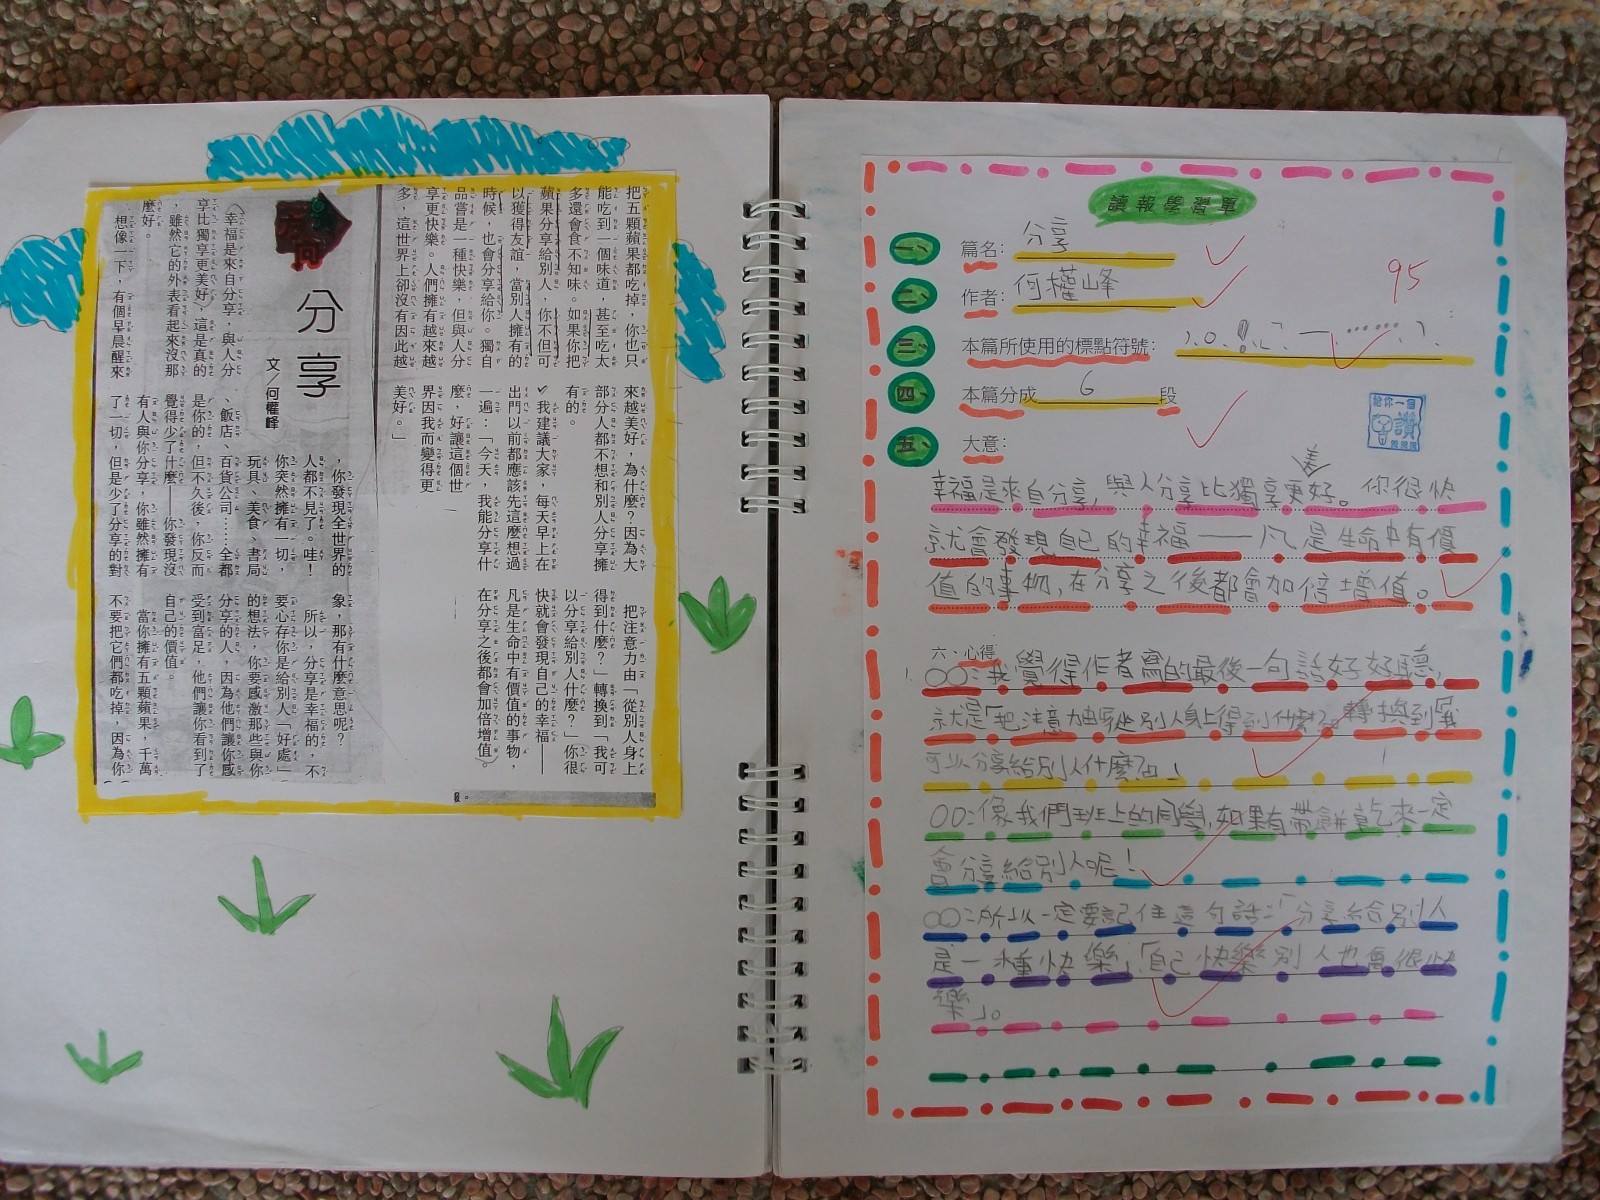 分享
文／何權峰
〈幸福是來自分享，與人分
享比獨享更美好〉，這是真的
，雖然它的外表看起來沒那
麼好。
想像一下，有個早晨醒來
，你發現全世界的
人都不見了。哇！
你突然擁有一切，
玩具、美食、書局
、飯店、百貨公司……全都
是你的，但不久後，你反而
覺得少了什麼——你發現沒
有人與你分享，你雖然擁有
了一切，但是少了分享的對
象，那有什麼意思呢？
所以，分享是幸福的，不
要心存你是給別人「好處」
的想法，你要感激那些與你
分享的人，因為他們讓你感
受到富足，他們讓你看到了
自己的價值。
當你擁有五顆蘋果，千萬
不要把它們都吃掉，因為你
把五顆蘋果都吃掉，你也只
能吃到一個味道，甚至吃太
多還會食不知味。如果你把
蘋果分享給別人，你不但可
以獲得友誼，當別人擁有的
時候，也會分享給你。獨自
品嘗是一種快樂，但與人分
享更快樂。人們擁有越來越
多，這世界上卻沒有因此越
來越美好，為什麼？因為大
部分人都不想和別人分享擁
有的。
我建議大家，每天早上在
出門以前都應該先這麼想過
一遍：「今天，我能分享什
麼，好讓這個世
界因我而變得更
美好。」
把注意力由「從別人身上
得到什麼？」轉換到「我可
以分享給別人什麼？」你很
快就會發現自己的幸福——
凡是生命中有價值的事物，
在分享之後都會加倍增值。
讀報學習單
一、篇名：分享
二、作者：何權峰
95
三、本篇所使用的標點符號：
四、本篇分成 6 段
給你一個讚
五、大意：
幸福是來自分享，與人分享比獨享更美好。你很快
就會發現自己的幸福——凡是生命中有價
值的事物，在分享之後都會加倍增值。
六、心得
○○：我覺得作者寫的最後一句話好好聽，
就是「把注意力由『從別人身上得到什麼？』轉換到『我
可以分享給別人什麼？』」
○○：像我們班上的同學，如果有帶餅乾來一定
會分享給別人呢！
○○：所以一定要記住這句話：「分享給別人
是一種快樂」，「自己快樂別人也會很快
樂」。